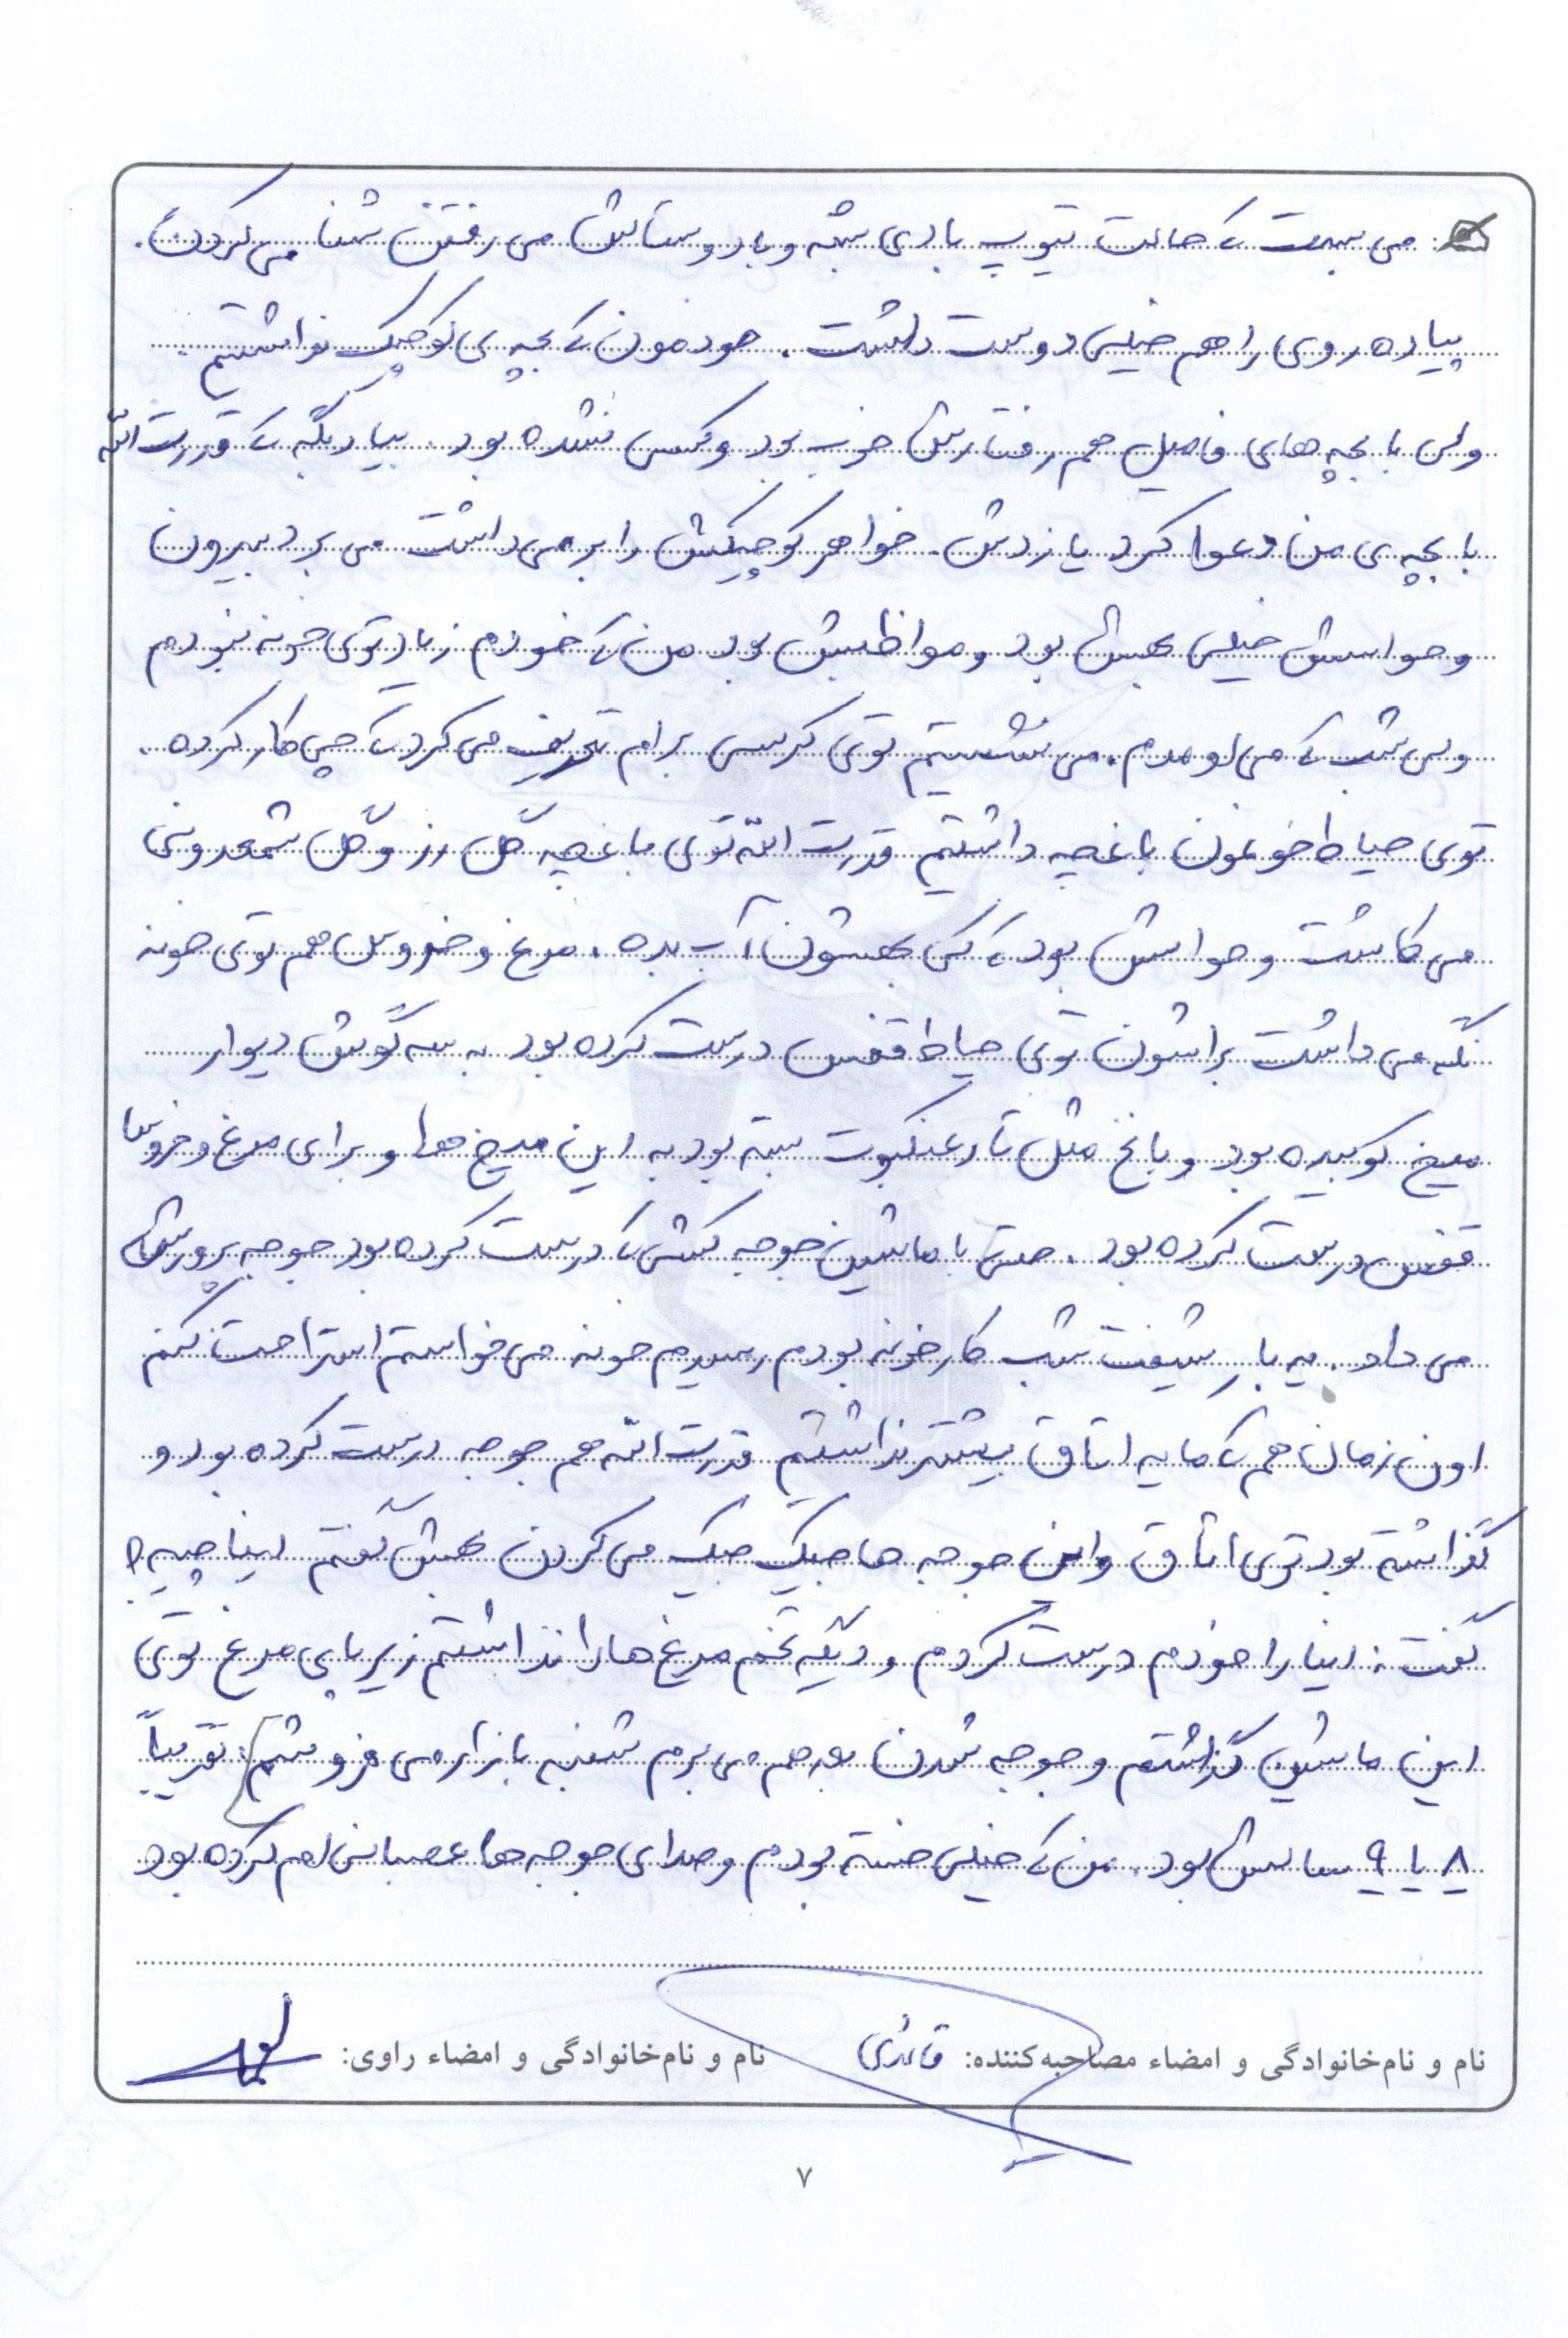 می بست که حالت تیوپ بادی بشه و با دوستاش می رفتن شنا می کردن.
پیاده روی را هم خیلی دوست داشت. خودمون که بچه ی کوچیک نداشتیم.
ولی با بچه های فامیل هم رفتارش خوب بود و کسی نشده بود. بیاد بگه که قدرت الله
با بچه ی من دعوا کرد یا زدش. خواهر کوچیکش را بر می داشت می برد بیرون
و حواسش خیلی بهش بود و مواظبش بود من که خودم زیاد توی خونه نبودم
ولی شب که می اومدم. می نشستیم توی کرسی برام تعریف می کرد که چی کار کرده.
توی حیاط خونمون باغچه داشتیم قدرت الله توی باغچه گل رز و گل شمعدونی
می کاشت و حواسش بود که کی بهشون آب بده. مرغ و خروس هم توی خونه
نگه می داشت براشون توی حیاط قفس درست کرده بود به سه گوش دیوار
میخ کوبیده بود و با نخ مثل تار عنکبوت بسته بود به این میخ ها و برای مرغ و خروسا
قفس درست کرده بود. حتی با ماشین جوجه کشی که درست کرده بود جوجه پرورش
می داد. یه بار شیفت شب کارخونه بودم رسیدم خونه می خواستم استراحت کنم
اون زمان هم که ما یه اتاق بیشتر نداشتیم قدرت الله هم جوجه درست کرده بود و
گذاشته بود توی اتاق و این جوجه ها جیک جیک می کردن بهش گفتم اینا چیه؟
گفت: اینا را خودم درست کردم و دیگه تخم مرغ ها را نذاشتم زیر پای مرغ توی
این ماشین گذاشتم و جوجه شدن بعد هم می برم شنبه بازار می فروشم. تقریباً
۸ یا ۹ سالش بود. من که خیلی خسته بودم و صدای جوجه ها عصبانی ام کرده بود
نام و نام‌خانوادگی و امضاء مصاحبه‌کننده: قائدی نام و نام‌خانوادگی و امضاء راوی:
۷